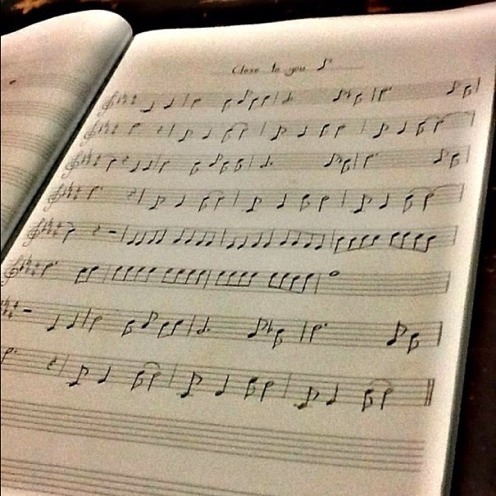 Close to you